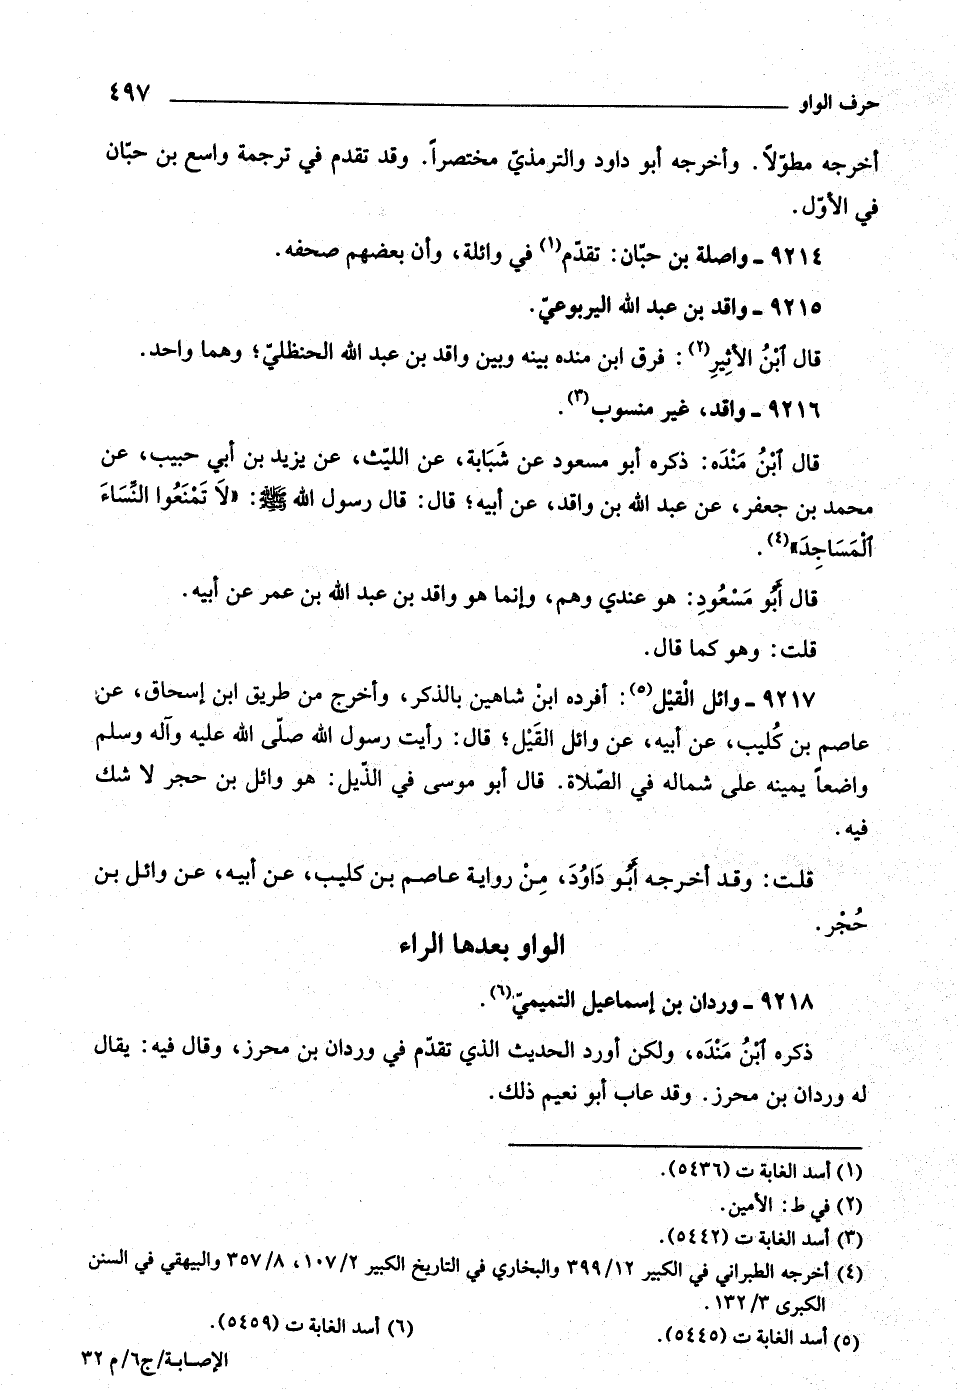 حرف الواو ٤٩٧
أخرجه مطوّلاً. وأخرجه أبو داود والترمذيّ مختصراً. وقد تقدم في ترجمة واسع بن حبّان
في الأوّل.
٩٢١٤ ـ واصلة بن حبّان: تقدّم(١) في وائلة، وأن بعضهم صحفه.
٩٢١٥ ـ واقد بن عبد الله اليربوعيّ.
قال ٱبْنُ الأثِيرِ(٢): فرق ابن منده بينه وبين واقد بن عبد الله الحنظليّ؛ وهما واحد.
٩٢١٦ ـ واقد، غير منسوب(٣).
قال ٱبْنُ مَنْدَه: ذكره أبو مسعود عن شَبَابة، عن الليّث، عن يزيد بن أبي حبيب، عن
محمد بن جعفر، عن عبد الله بن واقد، عن أبيه؛ قال: قال رسول الله ﷺ: «لَا تَمْنَعُوا النِّسَاءَ
ٱلْمَسَاجِدَ»(٤).
قال أَبُو مَسْعُودِ: هو عندي وهم، وإنما هو واقد بن عبد الله بن عمر عن أبيه.
قلت: وهو كما قال.
٩٢١٧ ـ وائل الْقيْل(٥): أفرده ابنْ شاهين بالذكر، وأخرج من طريق ابن إسحاق، عن
عاصم بن كُليب، عن أبيه، عن وائل القَيْل؛ قال: رأيت رسول الله صلّى الله عليه وآله وسلم
واضعاً يمينه على شماله في الصّلاة. قال أبو موسى في الذّيل: هو وائل بن حجر لا شك
فيه.
قلت: وقد أخرجه أَبُو دَاوُدَ، مِنْ رواية عاصم بن كليب، عن أبيه، عن وائل بن
حُجْر.
الواو بعدها الراء
٩٢١٨ ـ وردان بن إسماعيل التميميّ(٦).
ذكره ٱبْنُ مَنْدَه، ولكن أورد الحديث الذي تقدّم في وردان بن محرز، وقال فيه: يقال
له وردان بن محرز. وقد عاب أبو نعيم ذلك.
(١) أسد الغابة ت (٥٤٣٦).
(٢) في ط: الأمين.
(٣) أسد الغابة ت (٥٤٤٢).
(٤) أخرجه الطبراني في الكبير ١٢/ ٣٩٩ والبخاري في التاريخ الكبير ٢/ ١٠٧، ٨/ ٣٥٧ والبيهقي في السنن
الكبرى ٣/ ١٣٢.
(٥) أسد الغابة ت (٥٤٤٥). (٦) أسد الغابة ت (٥٤٥٩).
الإصابة/ج٦/م ٣٢